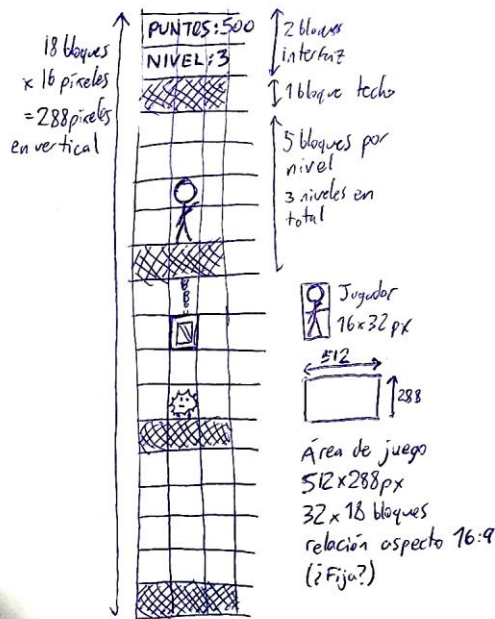 18 bloques
x 16 píxeles
= 288 píxeles
en vertical
PUNTOS:500
NIVEL:3
2 bloques
interfaz
1 bloque techo
5 bloques por
nivel
3 niveles en
total
Jugador
16x32 px
512
288
Área de juego
512x288px
32x18 bloques
relación aspecto 16:9
(¿Fija?)